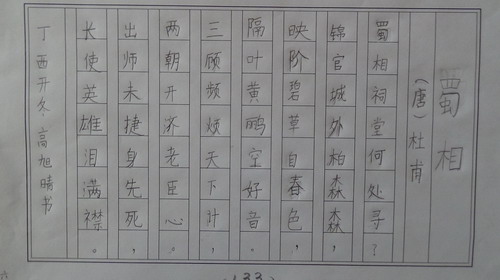 蜀相
（唐）杜甫
蜀相祠堂何处寻？
锦官城外柏森森，
映阶碧草自春色，
隔叶黄鹂空好音。
三顾频烦天下计，
两朝开济老臣心。
出师未捷身先死，
长使英雄泪满襟。
丁酉开冬 高旭晴书